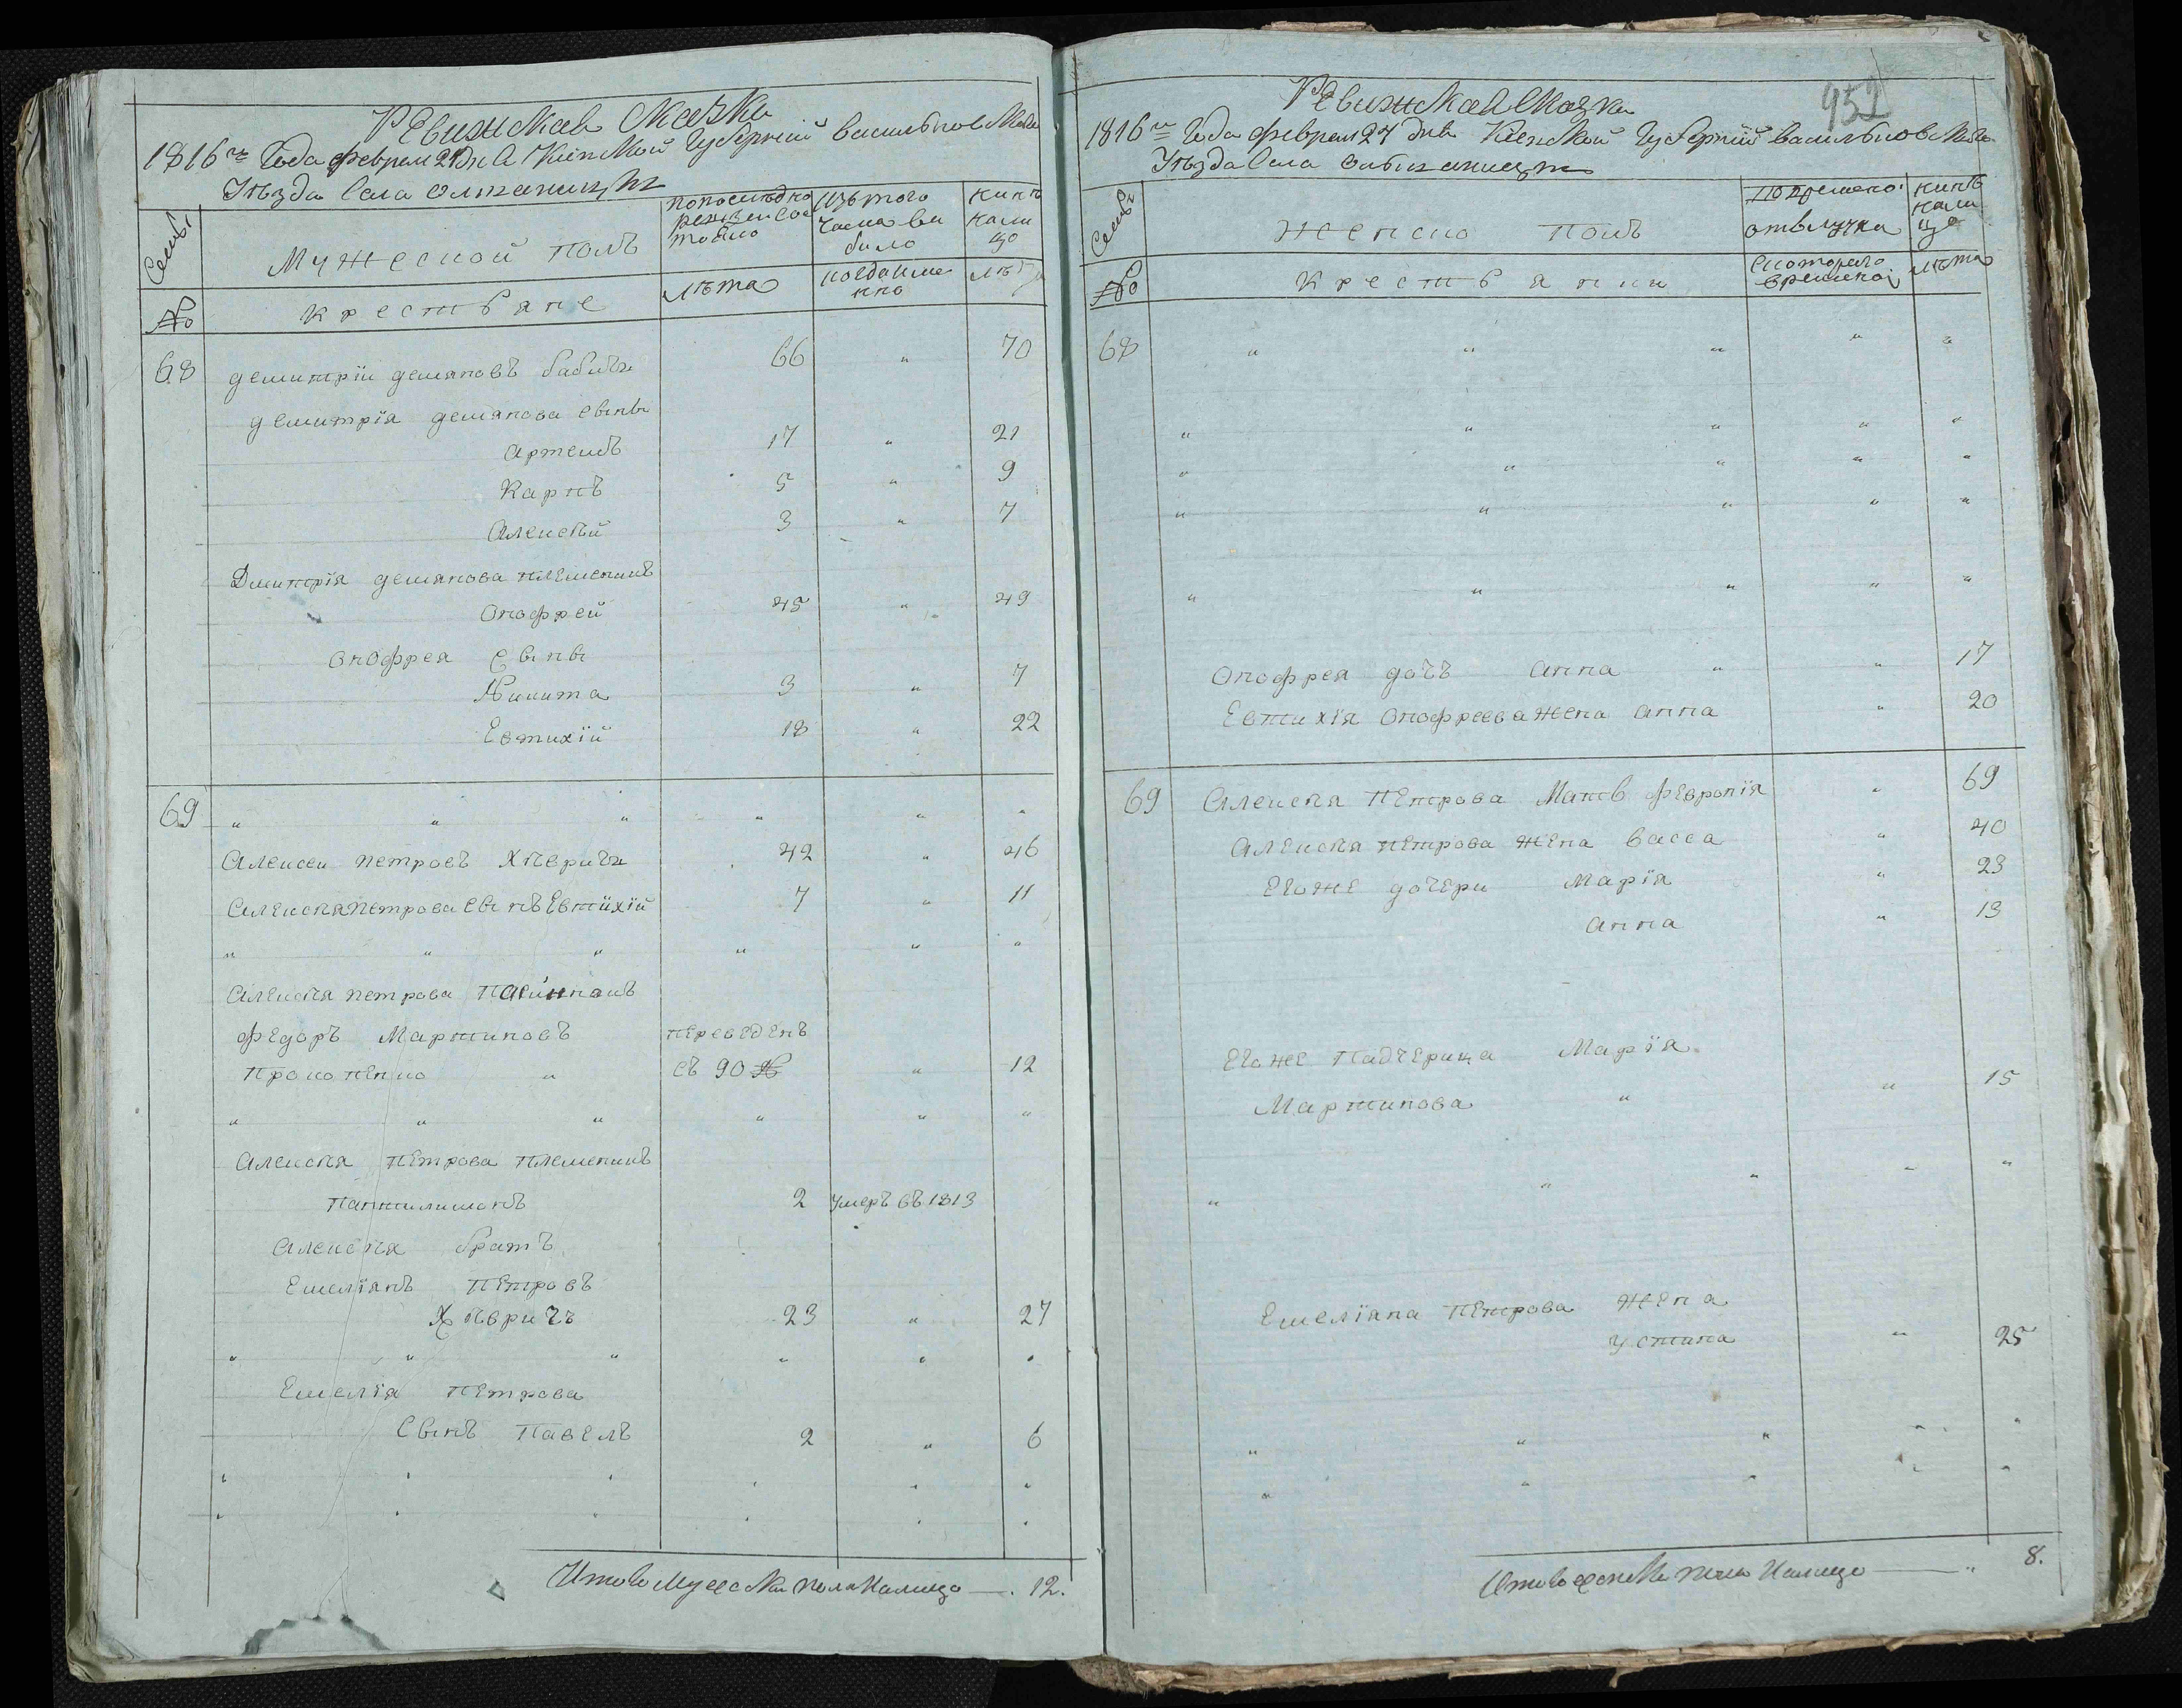 Ревижская Сказка
1816го Года февраля 27 дня Киевской Губернїй васильковскаго
Уѣзда Села олшаницы
Семьи
Мужеской полъ
по последной ревизии состояло
Изъ того числа выбыло
нинѣ налицо
№
крестьяне
лѣта
когда именно
лѣта
68 демитрїи демяновъ бабичъ 66 " 70
демитрїя демянова сыны
артемъ 17 " 21
карпъ 5 " 9
алексѣй 3 " 7
Дмитрїя демянова племеникъ
онофрей 45 " 49
онофрея сыны
Никита 3 " 7
Евтихїй 18 " 22
69 " " " " " "
алексеи петровъ хѣвричъ 42 " 46
алексѣя петрова сынъ Евтихїй 7 " 11
" " " " " "
алексѣя петрова пасинкаъ
федоръ Мартиновъ переведенъ
прокопенко " съ 90 № " 12
" " " " " "
алексѣя петрова племеникъ
пантилимонъ 2 умеръ въ 1813
алексѣя братъ
Емелїанъ петровъ
Хѣвричъ 23 " 27
" " " " " "
Емелїя петрова
Сынъ павелъ 2 " 6
" " " " " "
" " " " " "
Итого мужеска пола налицо — 12.
952
Ревижская Сказка
1816го Года февраля 27 дня Киевской Губернїй васильковскаго
Уѣзда Села олшаницы
Семьи
женско полъ
во времено отлучки
нинѣ налицо
№
крестьянки
с которого времено
лѣта
68 " " " " "
" " " " "
" " " " "
" " " " "
" " " " "
онофрея дочъ анна " " 17
Евтихїя онофреева жена анна " 20
69 алексѣя петрова Мать февронїя " 69
алексѣя петрова жена васса " 40
Егоже дочери Марїя " 23
анна " 13
Егоже падчерица Марїя
Мартинова " " 15
" " " " "
Емелїана петрова жена
устина " 25
" " " " "
" " " " "
Итого женска пола налицо — 8.